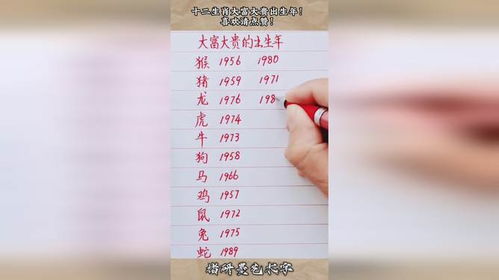 十二生肖大富大贵出生年！
喜欢请点赞！
大富大贵的出生年
猴 1956 1980
猪 1959 1971
龙 1976 198
虎 1974
牛 1973
狗 1958
马 1966
鸡 1957
鼠 1972
兔 1975
蛇 1989